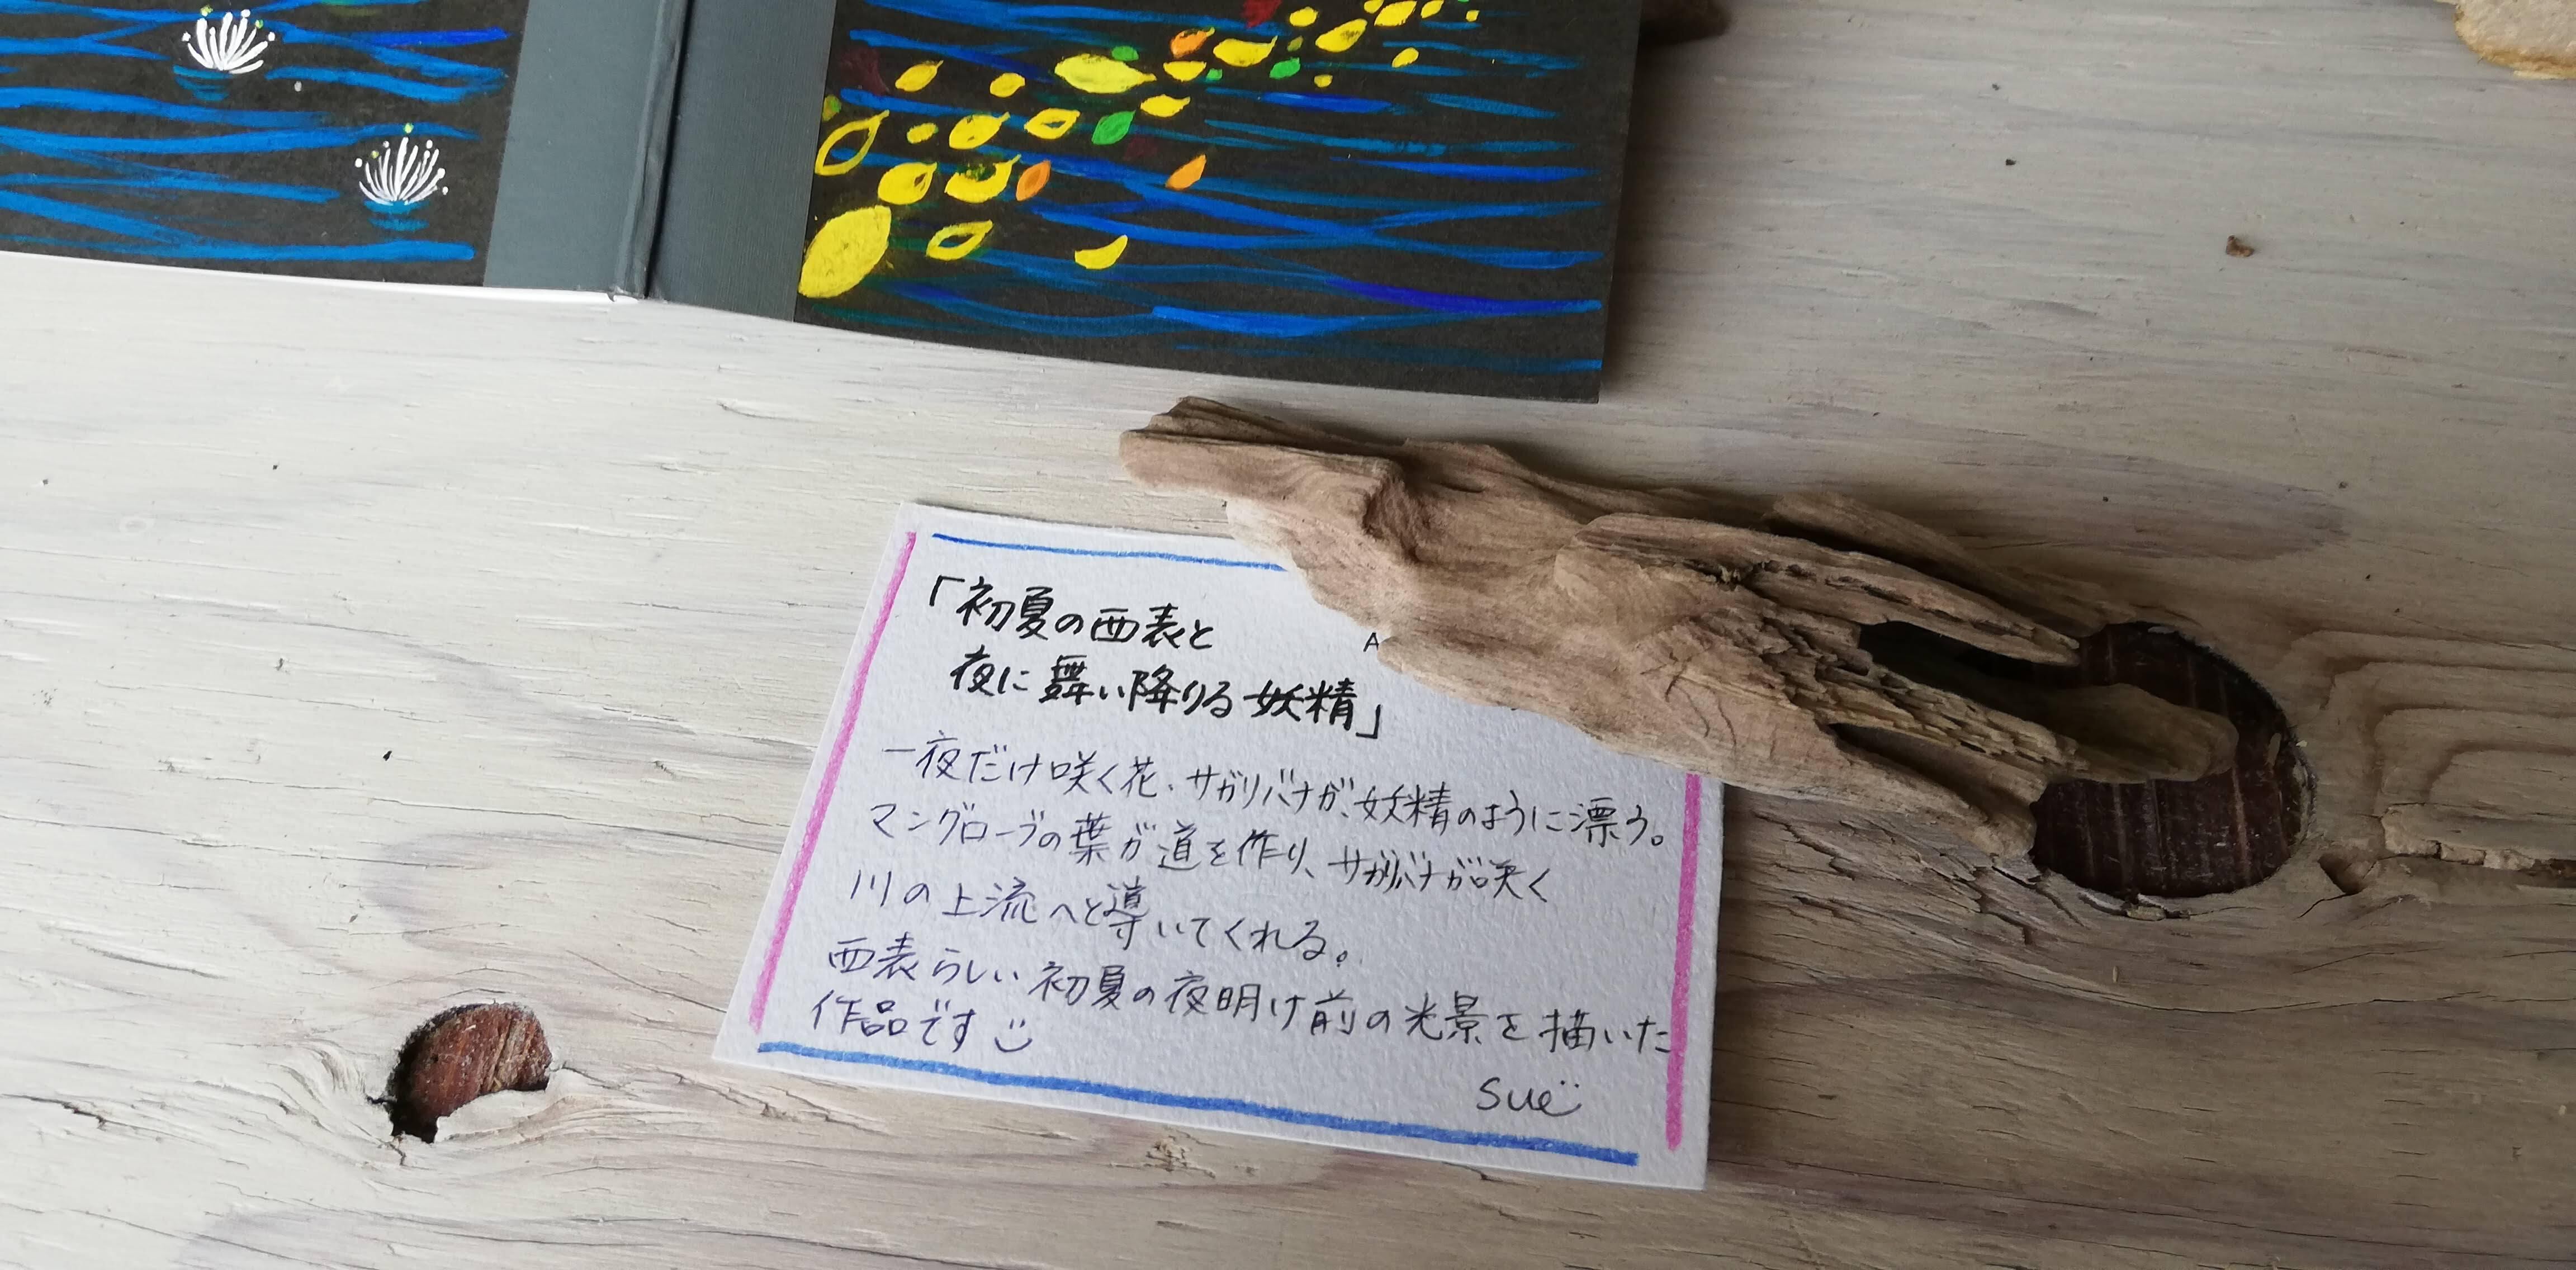 「初夏の西表と
夜に舞い降りる妖精」
一夜だけ咲く花、サガリバナが、妖精のように漂う。
マングローブの葉が道を作り、サガリバナが咲く
川の上流へと導いてくれる。
西表らしい初夏の夜明け前の光景を描いた
作品です
Sue